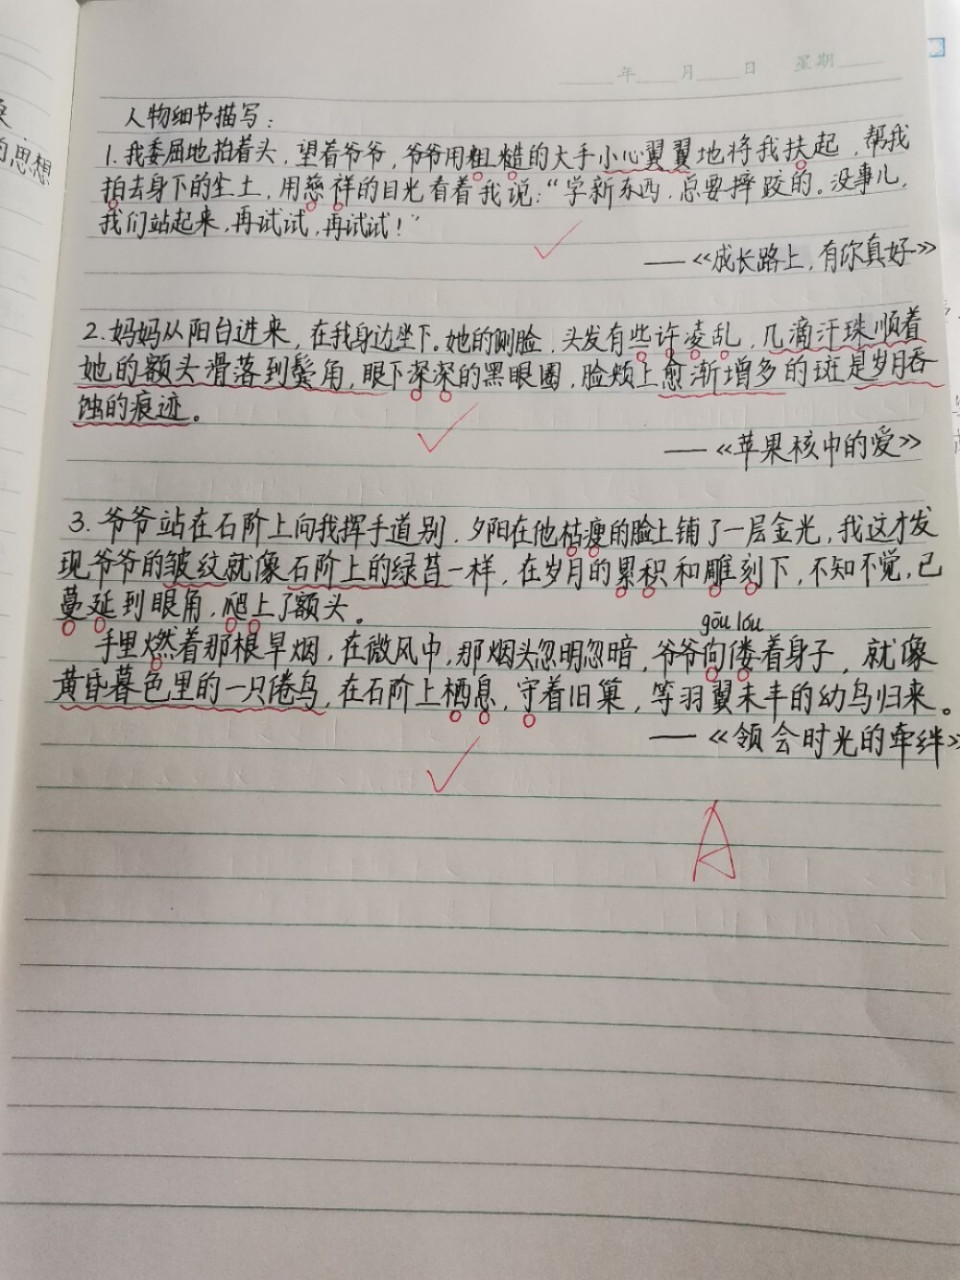 年 月 日 星期
人物细节描写：
1.我委屈地抬着头，望着爷爷，爷爷用粗糙的大手小心翼翼地将我扶起，帮我
拍去身下的尘土，用慈祥的目光看着我说：“学新东西，总要摔跤的。没事儿，
我们站起来，再试试，再试试！”
——《成长路上，有你真好》
2.妈妈从阳台进来，在我身边坐下。她的侧脸，头发有些许凌乱，几滴汗珠顺着
她的额头滑落到鬓角，眼下深深的黑眼圈，脸颊上愈渐增多的斑是岁月吞
蚀的痕迹。
——《苹果核中的爱》
3.爷爷站在石阶上向我挥手道别，夕阳在他枯瘦的脸上铺了一层金光，我这才发
现爷爷的皱纹就像石阶上的绿苔一样，在岁月的累积和雕刻下，不知不觉，已
蔓延到眼角，爬上了额头。
gōu lóu
手里燃着那根旱烟，在微风中，那烟头忽明忽暗，爷爷佝偻着身子，就像
黄昏暮色里的一只倦鸟，在石阶上栖息，守着旧巢，等羽翼未丰的幼鸟归来。
——《领会时光的牵绊》
A
思想